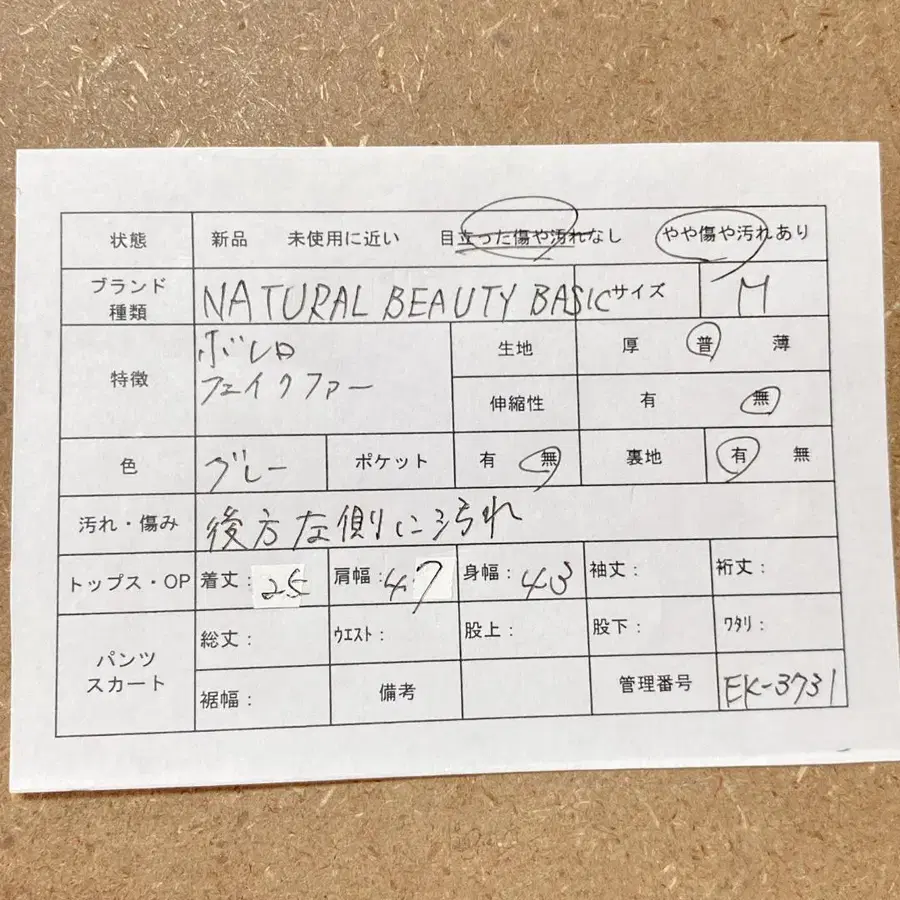 状態 新品 未使用に近い 目立った傷や汚れなし やや傷や汚れあり
ブランド種類 NATURAL BEAUTY BASIC サイズ M
特徴 ボレロ
フェイクファー
生地 厚 普 薄
伸縮性 有 無
色 グレー ポケット 有 無 裏地 有 無
汚れ・傷み 後方左側に汚れ
トップス・OP 着丈:25 肩幅:47 身幅:43 袖丈: 裄丈:
パンツ
スカート
総丈: ウエスト: 股上: 股下: ワタリ:
裾幅: 備考 管理番号 EK-3731